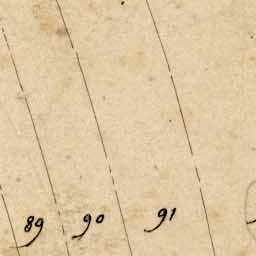 89 90 91